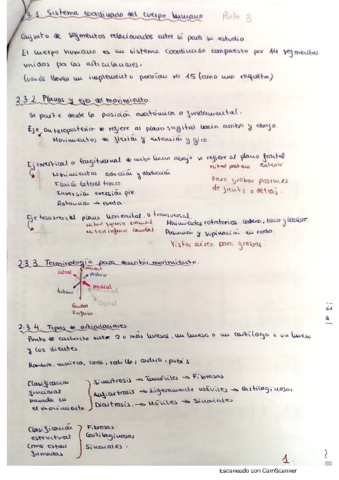 2.3.1 Sistema coordinado del cuerpo humano
Conjunto de segmentos relacionados entre sí para su estudio
El cuerpo humano es un sistema coordinado compuesto por 14 segmentos
unidos por las articulaciones.
un implemento 15 (como una raqueta)
2.3.2 Planos y ejes de movimiento.
Se parte desde la posición anatómica o fundamental.
Eje anteroposterior se refiere al plano sagital hacia arriba y abajo.
Movimientos flexión y extensión y giro.
Eje vertical o longitudinal se refiere al plano frontal
Movimientos aducción y abducción
Flexión lateral tronco
Eversión inversión pie.
Rotación → rueda
Para grabar
de frente o detrás.
Eje transversal plano horizontal o transversal
Movimientos rotatorios cadera, tronco y
Pronación y supinación en codo.
Vista aérea para grabar.
2.3.3 Terminología para describir movimiento.
Lateral
Anterior
Distal
2.3.4 Tipos de articulaciones
Punto de contacto entre 2 o más huesos, un hueso o un cartílago o un hueso
y los dientes.
Hombro, muñeca, codo, rodilla, cadera, pubis
Clasificación
funcional
basada en
el movimiento
Sinartrosis → Inmóviles → Fibrosas
Anfiartrosis → Ligeramente móviles → Cartilaginosas
Diartrosis → Móviles → Sinoviales
Clasificación
estructural
como están
formadas
Fibrosas
Cartilaginosas
Sinoviales.
1.
Escaneado con CamScanner